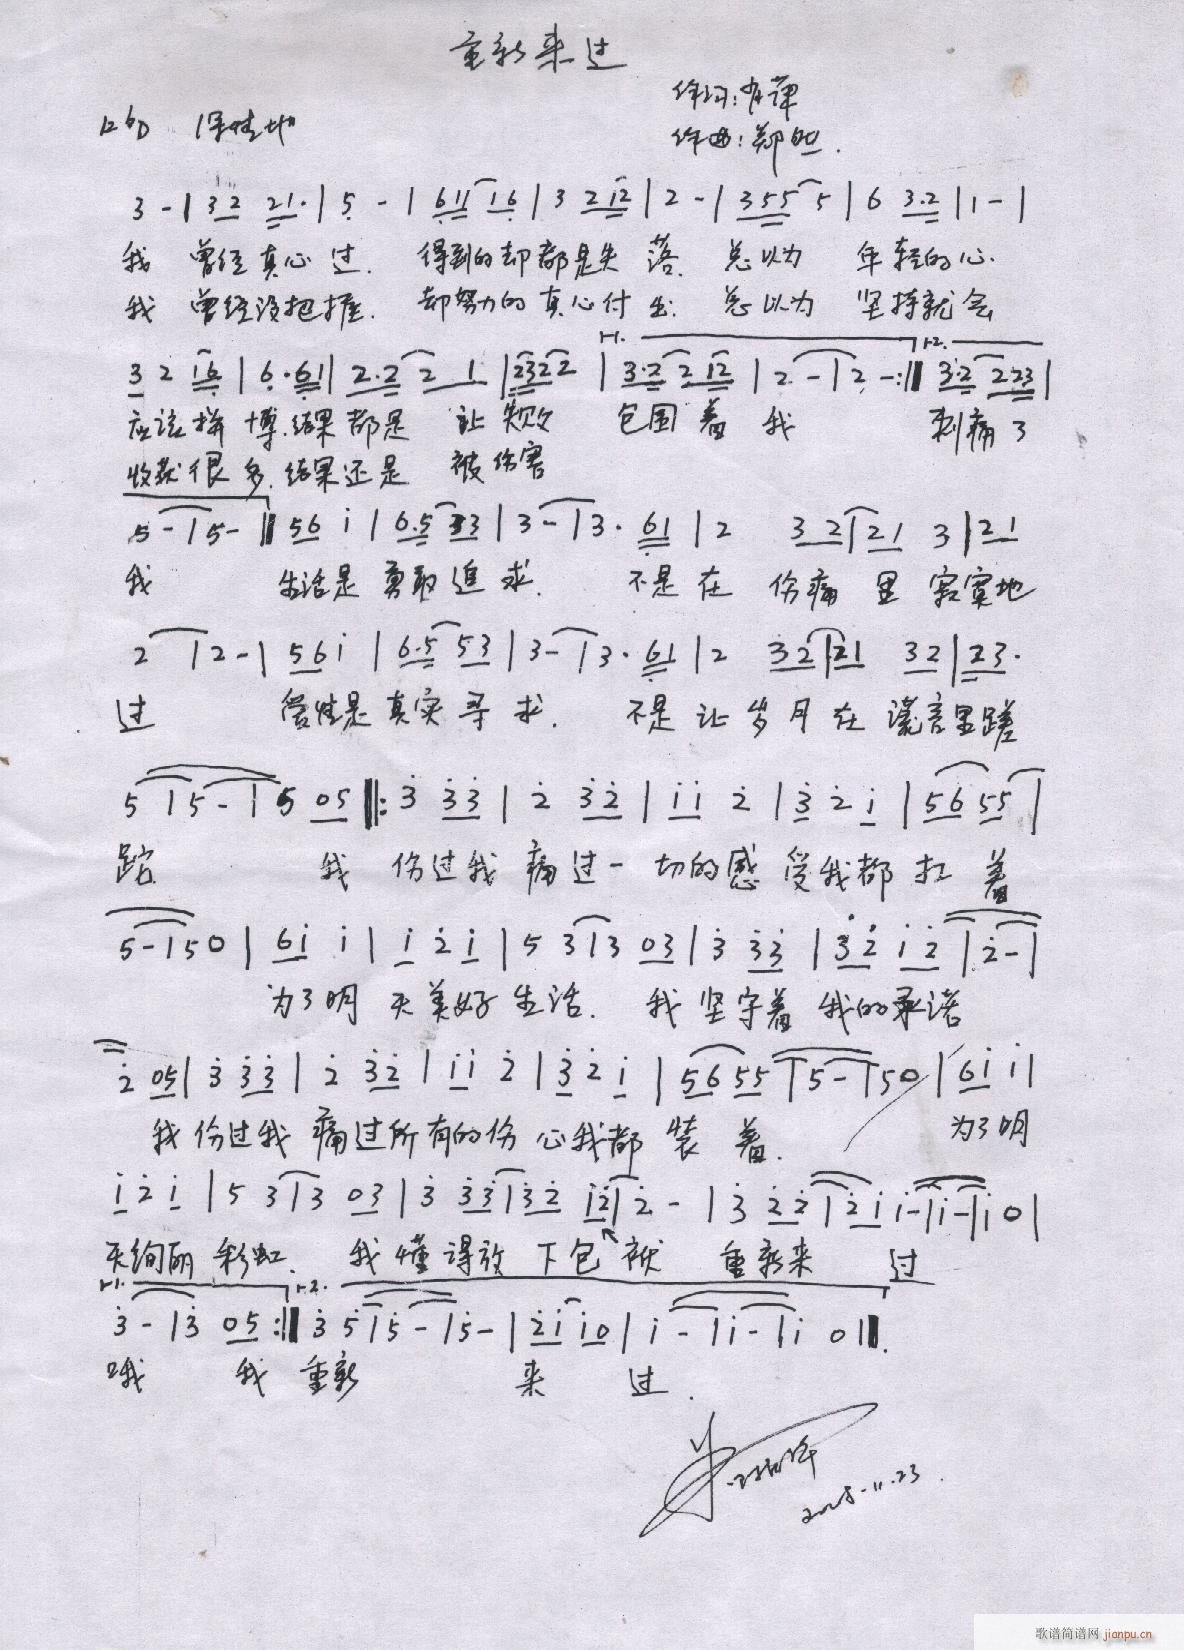 重新来过
作词:肖萍
作曲:郑
深情地
3 - | 3 2 2 1· | 5 - | 6 1 1 1 6 | 3 2 1 2 | 2 - | 3 5 5 5 | 6 3·2 | 1 - |
我 曾经真心 过. 得到的却都是失 落. 总以为 年轻的心.
我 曾经没把握. 却努力的真心付 出. 总以为 坚持就会
3 2 1 6 | 6·6 1 | 2·2 2 1 | 2 3 2 2 | 3·2 2 1 2 | 2 - | 2 - :‖ 3·2 2 2 3 |
应该拼 博.结果都是 让失败 包围 着 我 刺痛了
收获很多.结果还是 被伤害
5 - | 5 - ‖ 5 6 i | 6·5 3 3 | 3 - | 3· 6 1 | 2 3 2 | 2 1 3 | 2 1
我 生活是 勇敢追求. 不是在 伤痛 里 寂寞地
2 | 2 - | 5 6 i | 6·5 5 3 | 3 - | 3· 6 1 | 2 3 2 | 2 1 3 2 | 2 3·
过 爱情是真实寻求. 不是让岁月在谎言里蹉
5 | 5 - | 5 0 5 ‖: 3 3 3 | 2 3 2 | i i 2 | 3 2 i | 5 6 5 5 |
跎 我 伤过我 痛过一 切的感 受我都 扛 着
5 - | 5 0 | 6 i i | i 2 i | 5 3 | 3 0 3 | 3 3 3 | 3 2 i 2 | 2 - |
为了明 天美好生活. 我 坚守着 我的承诺
2 0 5 | 3 3 3 | 2 3 2 | i i 2 | 3 2 i | 5 6 5 5 | 5 - | 5 0 | 6 i i |
我 伤过我 痛过所有的伤 心我都 装 着. 为了明
i 2 i | 5 3 | 3 0 3 | 3 3 3 | 3 2 i 2 | 2 - | 3 2 2 | 2 i i - | i - | i 0 |
天绚丽 彩虹. 我 懂得放 下包袱 重新来 过
3 - | 3 0 5 :‖ 3 5 | 5 - | 5 - | 2 i i 0 | i - | i - | i 0 ‖
哦 我 重新 来 过.
歌谱简谱网 jianpu.cn